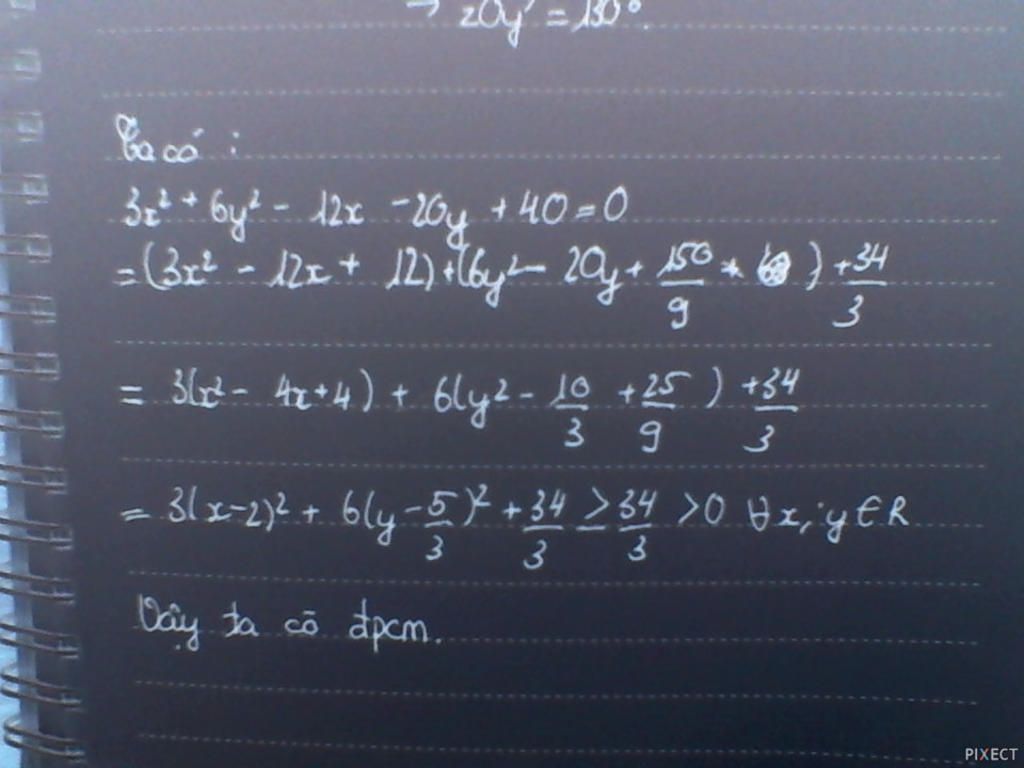 → zOy' = 130°.
Ta có :
3x² + 6y² - 12x - 20y + 40 = 0
= (3x² - 12x + 12) + (6y² - 20y + 150/9 + ) + 34/3
= 3(x² - 4x + 4) + 6(y² - 10/3 + 25/9 ) + 34/3
= 3(x-2)² + 6(y - 5/3)² + 34/3 ≥ 34/3 > 0 ∀x, y ∈ R
Vậy ta có đpcm.
PIXECT